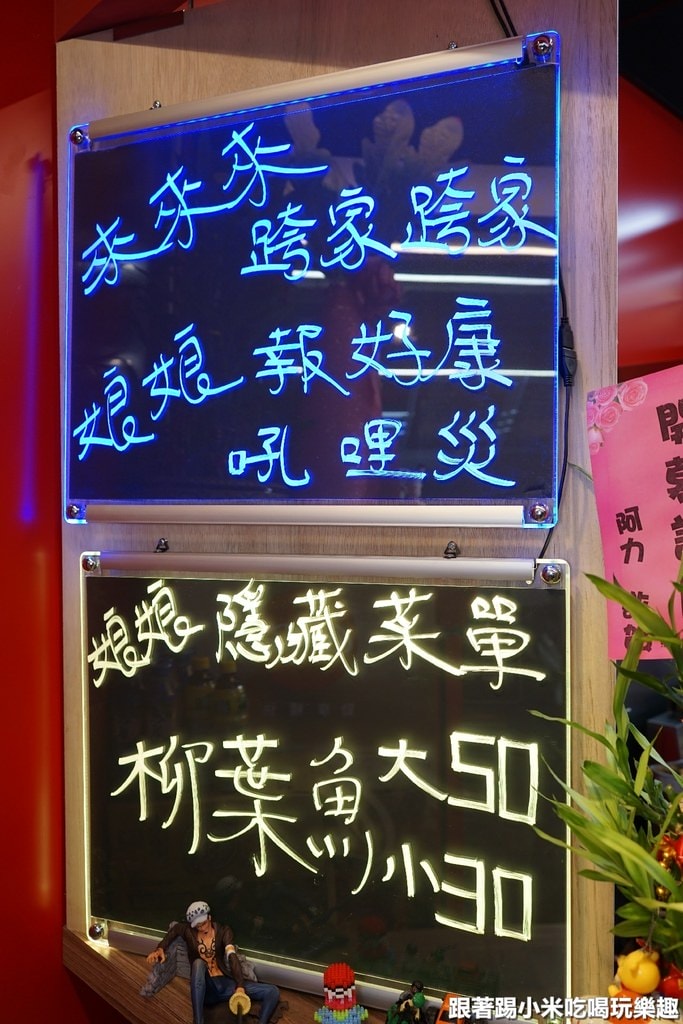 來來來
跨家跨家
娘娘 報好康
吼哩災
娘娘 隱藏菜單
柳葉魚 大50
小30
阿力
跟著踢小米吃喝玩樂趣